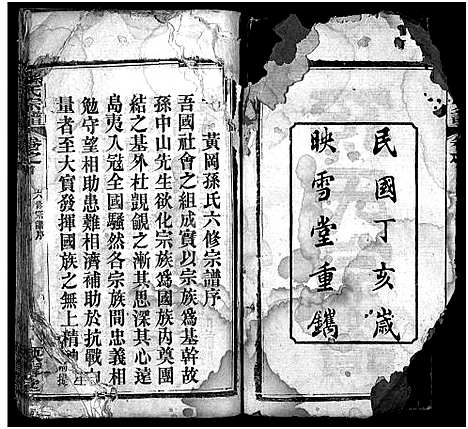 民國丁亥歲
映雪堂重鐫
黃岡孫氏六修宗譜序
吾國社會之組成實以宗族為基幹故
孫中山先生欲化宗族為國族內奠團
結之基外杜覬覦之漸其思深其心遠
島夷入寇全國騷然各宗族間忠義相
勉守望相助患難相濟補助於抗戰力
量者至大實發揮國族之無上精神
氏宗譜
六修宗譜序